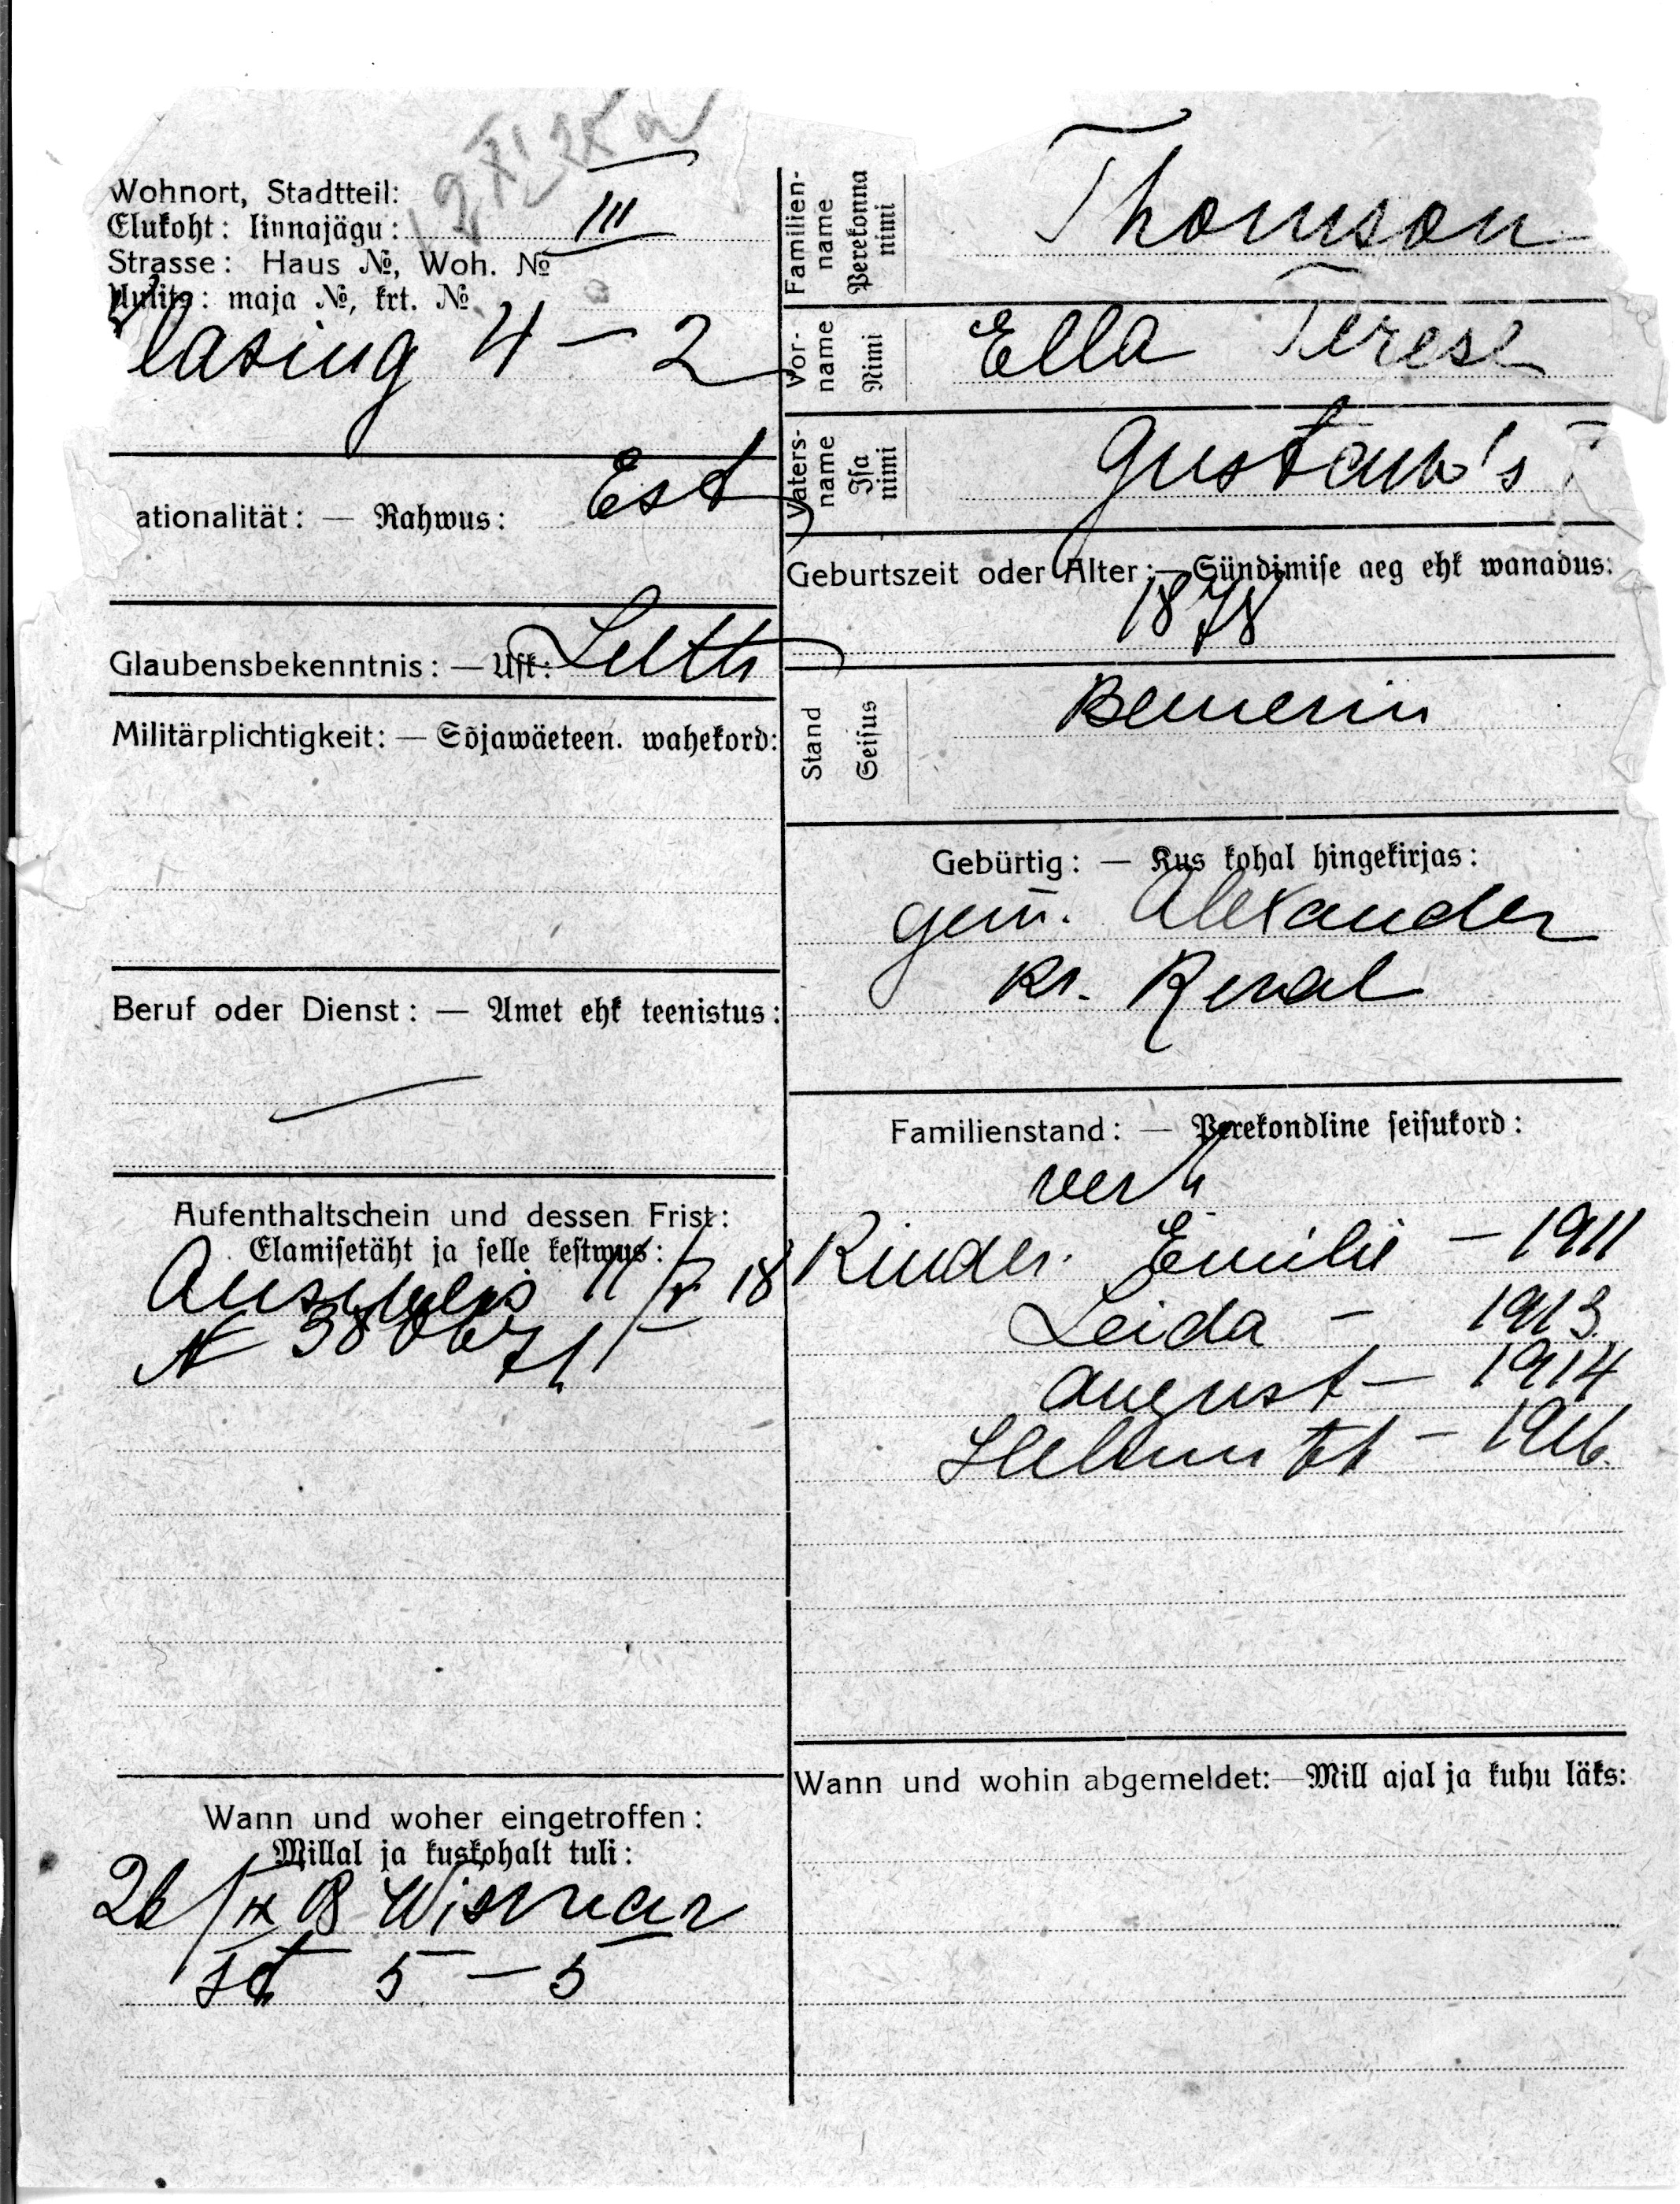 Wohnort, Stadtteil:
Elukoht: linnajägu: III
Strasse: Haus №, Woh. №
Uulits: maja №, krt. №
lasing 4 – 2
ationalität: — Rahwus: Est
Glaubensbekenntnis: — Usk: Luth
Militärplichtigkeit: — Sõjawäeteen. wahekord:
Beruf oder Dienst: — Amet ehk teenistus:
—
Aufenthaltschein und dessen Frist:
Elamisetäht ja selle kestwus:
Ausweis 11/V 18
Wann und woher eingetroffen:
Millal ja kuskohalt tuli:
26/IX 18 Wismar
st 5 – 5
Familien-
name
Perekonna
nimi
Thomson
Vor-
name
Nimi
Ella Terese
Vaters-
name
Isa
nimi
Gustaw's
Geburtszeit oder Alter: — Sündimise aeg ehk wanadus:
1878
Stand
Seisus
Beuerin
Gebürtig: — Kus kohal hingekirjas:
gem. Alexander
Kr. Reval
Familienstand: — Perekondline seisukord:
verh
Kinder. Emilie – 1911
Leida – 1913
August – 1914
Helmuth – 1916.
Wann und wohin abgemeldet: — Mill ajal ja kuhu läks: